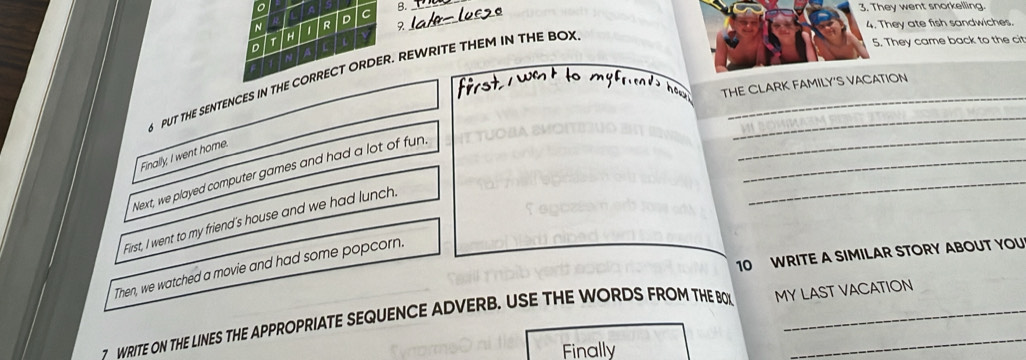 O
N
D T H I R D C
F I N A L L Y
B.
?. later-luego
6 PUT THE SENTENCES IN THE CORRECT ORDER. REWRITE THEM IN THE BOX.
Finally, I went home.
Next, we played computer games and had a lot of fun.
First, I went to my friend's house and we had lunch.
Then, we watched a movie and had some popcorn.
first, I went to my friend's
7 WRITE ON THE LINES THE APPROPRIATE SEQUENCE ADVERB. USE THE WORDS FROM THE BOX.
Finally
3. They went snorkelling.
4. They ate fish sandwiches.
5. They came back to the cit
THE CLARK FAMILY'S VACATION
10 WRITE A SIMILAR STORY ABOUT YOU
MY LAST VACATION